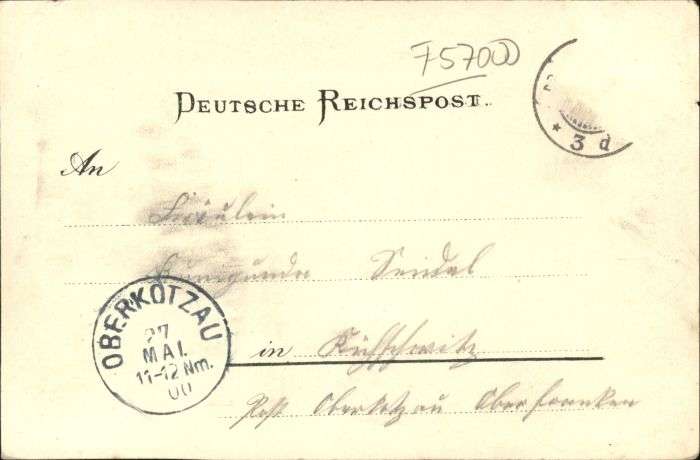 F57000
DEUTSCHE REICHSPOST.
* 3 d
An
Fräulein
Kunigunda Seidel
OBERKOTZAU
27
MAI.
11-12 Nm.
00
in
Post Oberkotzau Oberfranken